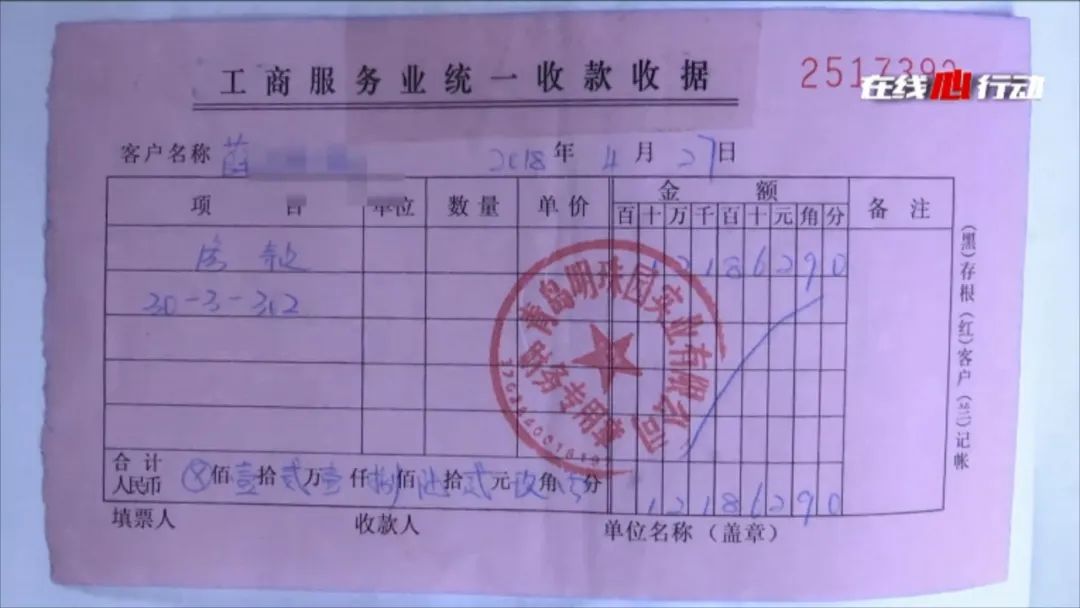 工商服务业统一收款收据
251739
在线心行动
客户名称 薛 2018年4月27日
项 目 单位 数量 单价 金额 备注
百十万千百十元角分
房款 12186290
30-3-302
青岛明珠园实业有限公司
财务专用章
合计人民币 ⊗佰壹拾贰万壹仟捌佰陆拾贰元玖角零分 12186290
填票人 收款人 单位名称（盖章）
（黑）存根（红）客户（兰）记帐